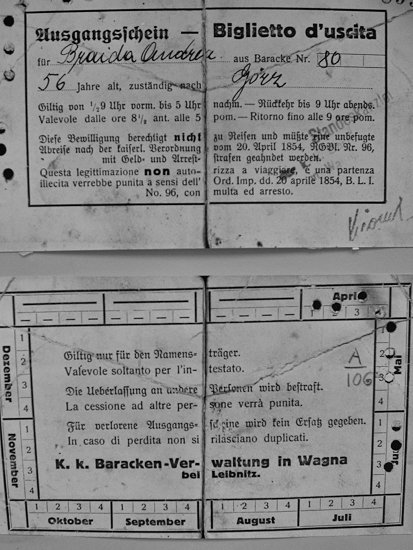 Ausgangsschein — Biglietto d'uscita
für Braida Andrea aus Baracke Nr. 80
56 Jahre alt, zuständig nach Görz
Giltig von ½9 Uhr vorm. bis 5 Uhr nachm. — Rückkehr bis 9 Uhr abends.
Valevole dalle ore 8½ ant. alle 5 pom. — Ritorno fino alle 9 ore pom.
Diese Bewilligung berechtigt nicht zu Reisen und müßte eine unbefugte
Abreise nach der kaiserl. Verordnung vom 20. April 1854, RGBl. Nr. 96,
mit Geld- und Arreststrafen geahndet werden.
Questa legittimazione non autorizza a viaggiare, e una partenza
illecita verrebbe punita a sensi dell' Ord. Imp. dd. 20 aprile 1854, B. L. I.
No. 96, con multa ed arresto.
April
1 2 3 4
Giltig nur für den Namensträger.
Valevole soltanto per l'intestato.
A
106
Die Ueberlassung an andere Personen wird bestraft.
La cessione ad altre persone verrà punita.
Für verlorene Ausgangsscheine wird kein Ersatz gegeben.
In caso di perdita non si rilasciano duplicati.
K. k. Baracken-Verwaltung in Wagna
bei Leibnitz.
Dezember
1 2 3 4
November
1 2 3 4
Mai
2 3 4
Juni
1 2 3 4
1 2 3 4
Oktober
1 2 3 4
September
1 2 3 4
August
1 2 3 4
Juli